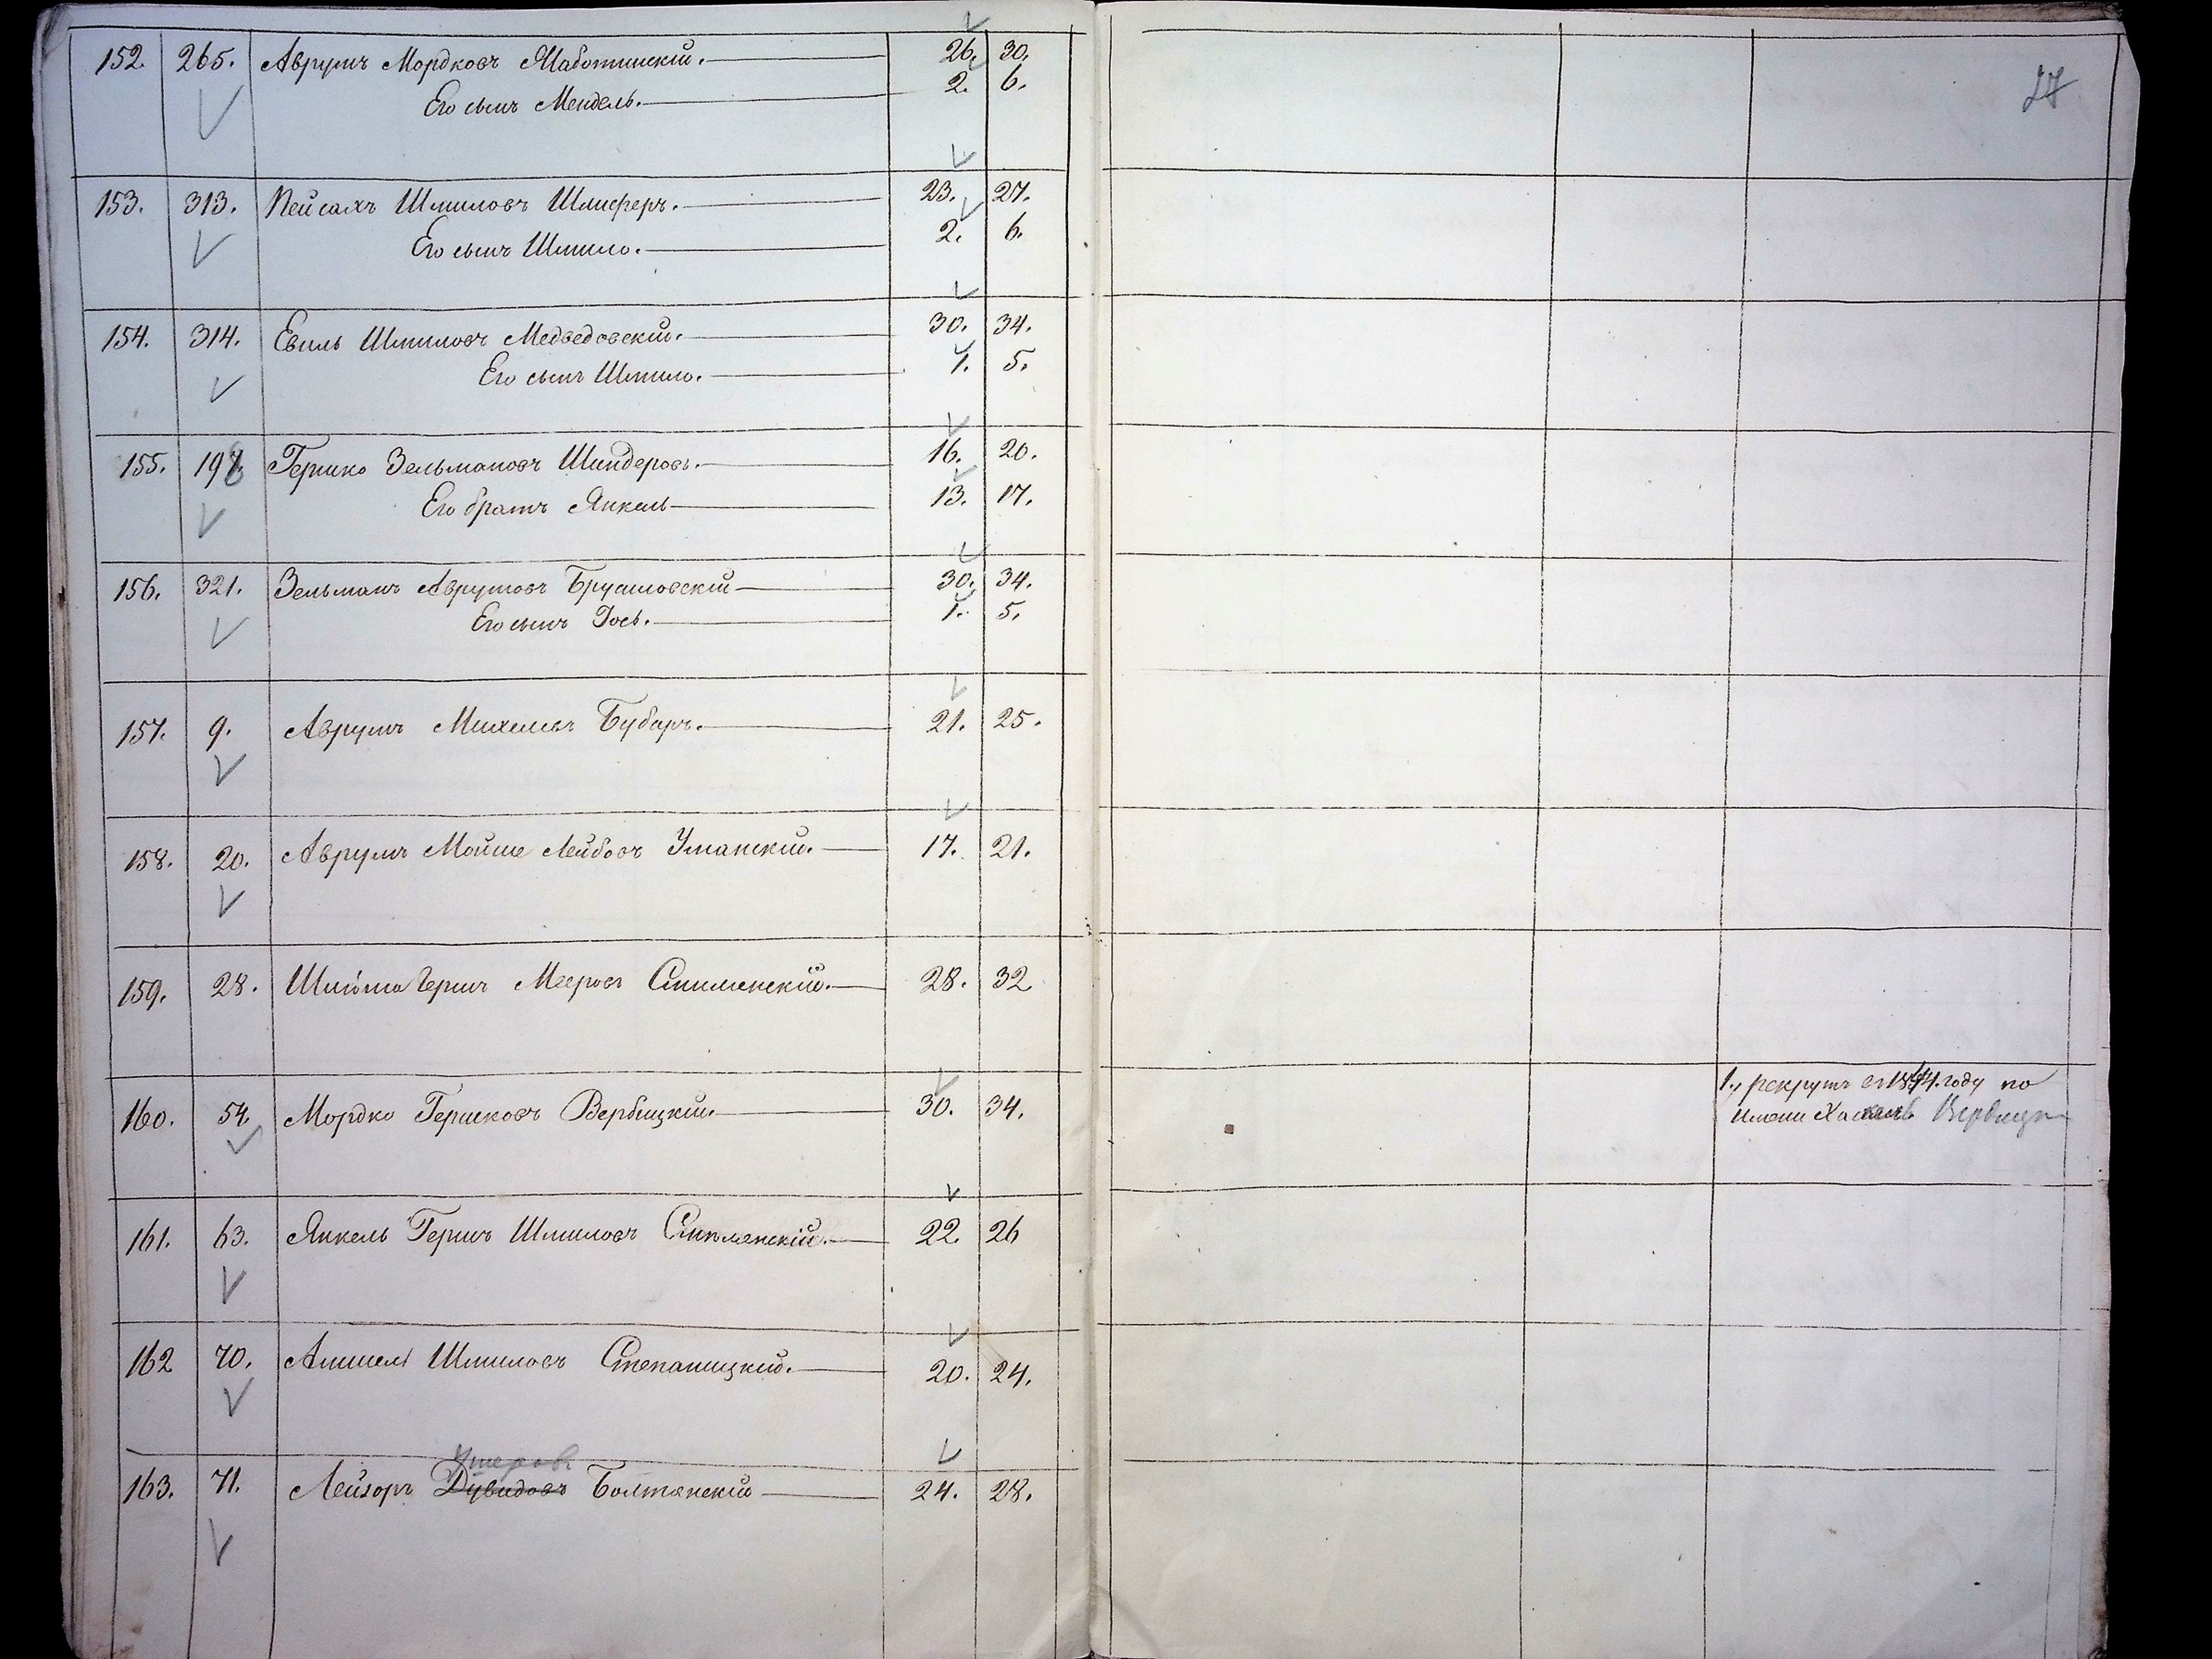 27
152. 265. Аврумъ Мордковъ Жаботинскій. 26. 30.
Его сынъ Мендель. 2. 6.
153. 313. Пейсахъ Шмиловъ Шлиферъ. 23. 27.
Его сынъ Шмило. 2. 6.
154. 314. Евиль Шмиловъ Медведовскій. 30. 34.
Его сынъ Шмило. 1. 5.
155. 198. Гершко Зельмановъ Шнидеровъ. 16. 20.
Его братъ Янкель 13. 17.
156. 321. Зельманъ Аврумовъ Брусиловскій 30. 34.
Его сынъ Іось. 1. 5.
157. 9. Аврумъ Михелевъ Бубаръ. 21. 25.
158. 20. Аврумъ Мойше Лейбовъ Уманскій. 17. 21.
159. 28. Гершъ Мееровъ Смилянскій. 28. 32
160. 54. Мордко Гершковъ Вербицкій. 30. 34.
1., рекрутъ въ 1844. году по
имени Хаскель Вербицк
161. 63. Янкель Гершъ Шмиловъ Смилянскій. 22. 26
162 70. Аншель Шмиловъ Степаницкій. 20. 24.
Умеровъ
163. 71. Лейзоръ Дувидовъ Болтянскій 24. 28.